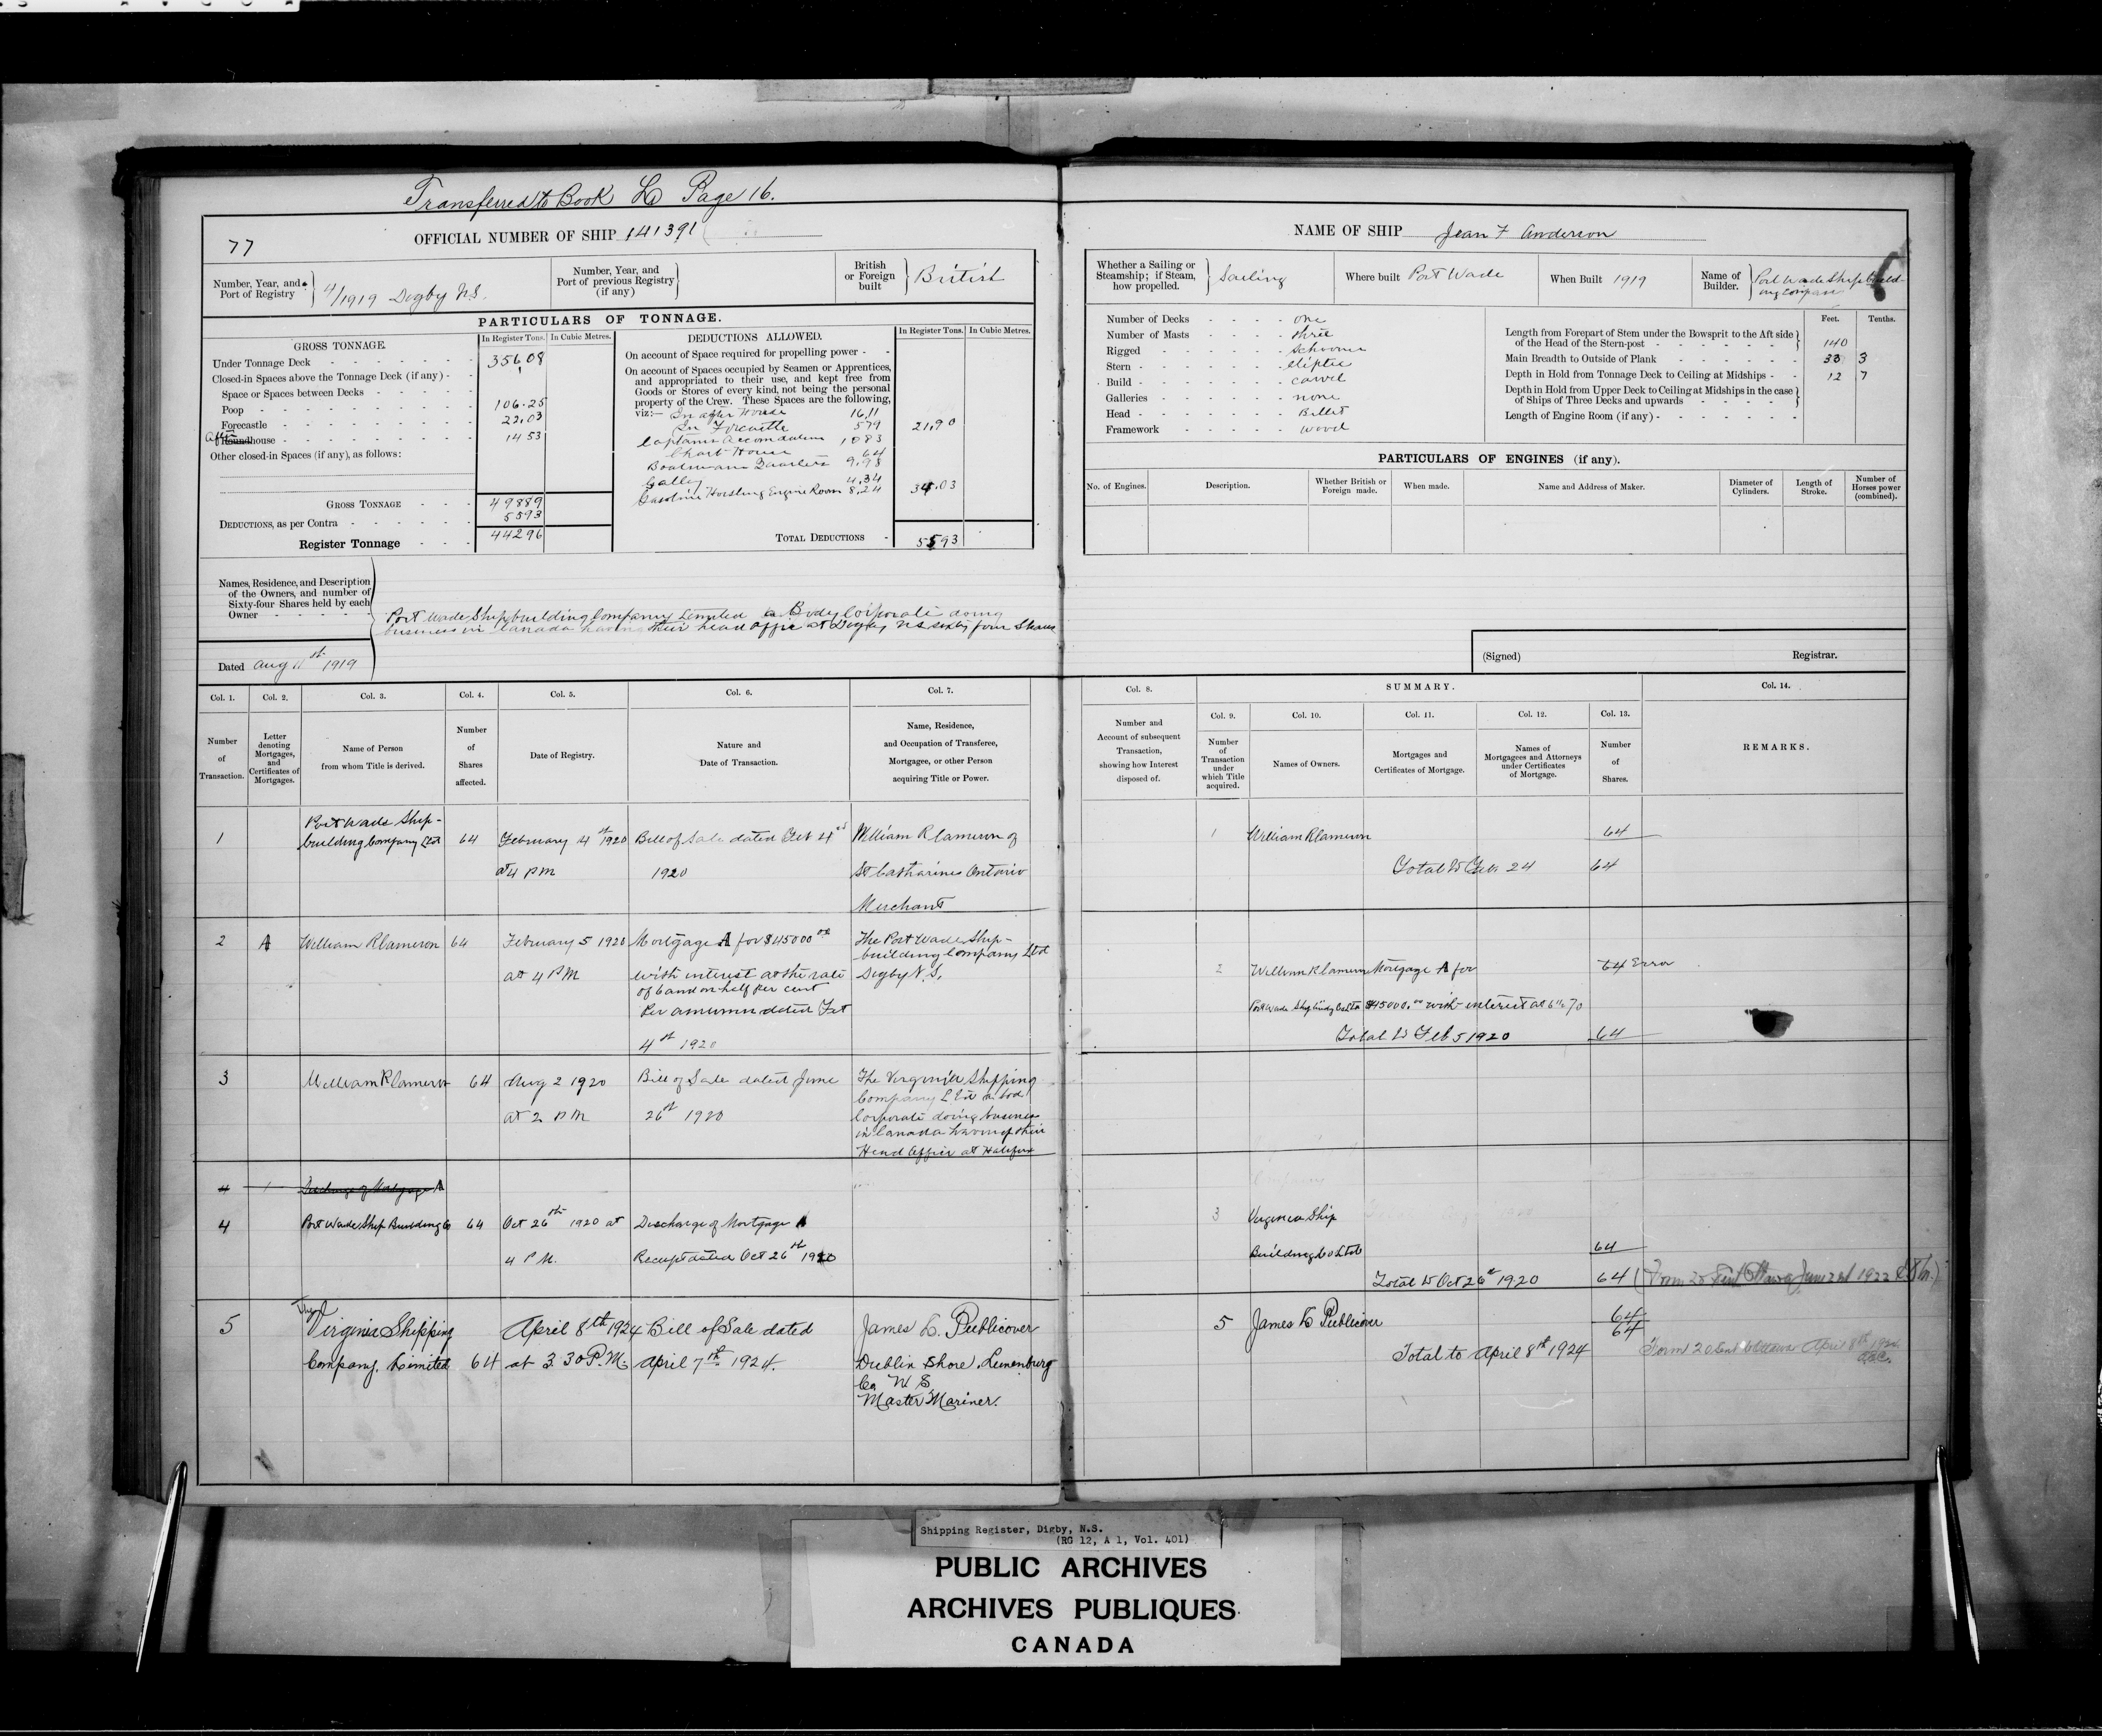 Transferred to Book L Page 16.
77
OFFICIAL NUMBER OF SHIP 141391
NAME OF SHIP Jean F Anderson
Number, Year, and Port of Registry 4/1919 Digby N.S.
Number, Year, and Port of previous Registry (if any)
British or Foreign built British
Whether a Sailing or Steamship; if Steam, how propelled. Sailing
Where built Port Wade
When Built 1919
Name of Builder. Port Wade Ship Building Company
PARTICULARS OF TONNAGE.
GROSS TONNAGE.
In Register Tons. In Cubic Metres.
Under Tonnage Deck 356.08
Closed-in Spaces above the Tonnage Deck (if any)
Space or Spaces between Decks
Poop 106.25
Forecastle 22.03
After Roundhouse 14 53
Other closed-in Spaces (if any), as follows:
GROSS TONNAGE 49889
DEDUCTIONS, as per Contra 5593
Register Tonnage 44296
DEDUCTIONS ALLOWED.
In Register Tons. In Cubic Metres.
On account of Space required for propelling power
On account of Spaces occupied by Seamen or Apprentices,
and appropriated to their use, and kept free from
Goods or Stores of every kind, not being the personal
property of the Crew. These Spaces are the following,
viz:— In after House 16,11
In Forcastle 579 21.90
Captains Accomdation 1083
Chart House 64
Boatswains Quarters 9.98
Galley 4.34
Gasoline Hoisting Engine Room 8.24 34.03
TOTAL DEDUCTIONS 5593
Number of Decks one
Number of Masts three
Rigged schooner
Stern eliptic
Build carvel
Galleries none
Head Billet
Framework wood
Feet. Tenths.
Length from Forepart of Stem under the Bowsprit to the Aft side
of the Head of the Stern-post 140
Main Breadth to Outside of Plank 33 3
Depth in Hold from Tonnage Deck to Ceiling at Midships 12 7
Depth in Hold from Upper Deck to Ceiling at Midships in the case
of Ships of Three Decks and upwards
Length of Engine Room (if any)
PARTICULARS OF ENGINES (if any).
No. of Engines.
Description.
Whether British or Foreign made.
When made.
Name and Address of Maker.
Diameter of Cylinders.
Length of Stroke.
Number of Horses power (combined).
Names, Residence, and Description
of the Owners, and number of
Sixty-four Shares held by each
Owner
Port Wade Shipbuilding Company Limited a Body Corporate doing
business in Canada having their head office at Digby N.S sixty four Shares
Dated Aug 11st 1919
(Signed) Registrar.
Col. 1. Col. 2. Col. 3. Col. 4. Col. 5. Col. 6. Col. 7.
Number of Transaction.
Letter denoting Mortgages, and Certificates of Mortgages.
Name of Person from whom Title is derived.
Number of Shares affected.
Date of Registry.
Nature and Date of Transaction.
Name, Residence, and Occupation of Transferee, Mortgagee, or other Person acquiring Title or Power.
Col. 8.
SUMMARY.
Col. 14.
Col. 9. Col. 10. Col. 11. Col. 12. Col. 13.
Number and Account of subsequent Transaction, showing how Interest disposed of.
Number of Transaction under which Title acquired.
Names of Owners.
Mortgages and Certificates of Mortgage.
Names of Mortgagees and Attorneys under Certificates of Mortgage.
Number of Shares.
REMARKS.
1 Port Wade Ship-
building Company Ltd 64 February 4st 1920 Bill of Sale dated Feb 4st William R Cameron of
at 4 PM 1920 St Catharines Ontario
Merchant
1 William R Cameron 64
Total to Feb 24 64
2 A William R Cameron 64 February 5 1920 Mortgage A for $45000 00 The Port Wade Ship-
building Company Ltd
at 4 PM with interest at the rate Digby N.S.
of 6 and on half per cent
Per annumn dated Feb
4st 1920
2 William R Cameron Mortgage A for 64 Error
Port Wade Ship Co Ltd $45000.00 with interest at 6 1/2 %
Total to Feb 5 1920 64
3 William R Cameron 64 Aug 2 1920 Bill of Sale dated June The Virginia Shipping
at 2 PM 26st 1920 Company Ltd a bod
Corporate doing business
in Canada having their
Head Office at Halifax
4 Discharge of Mortgage A
4 Port Wade Ship Building Co 64 Oct 26th 1920 at Discharge of Mortgage A
4 P M. Receipt dated Oct 26st 1920
3 Virginia Ship
Building Co Ltd 64
Total to Oct 26st 1920 64 (Form 20 Sent Ottawa June 2st 1922
5 The Virginia Shipping April 8th 1924 Bill of Sale dated James L. Publicover
Company, Limited 64 at 3.30 P.M. April 7th 1924. Dublin Shore, Lunenburg
Co N S
Master Mariner.
5 James L Publicover 64
64
Total to April 8th 1924 Form 20 Sent to Ottawa April 8th 1924
Shipping Register, Digby, N.S.
(RG 12, A 1, Vol. 401)
PUBLIC ARCHIVES
ARCHIVES PUBLIQUES
CANADA